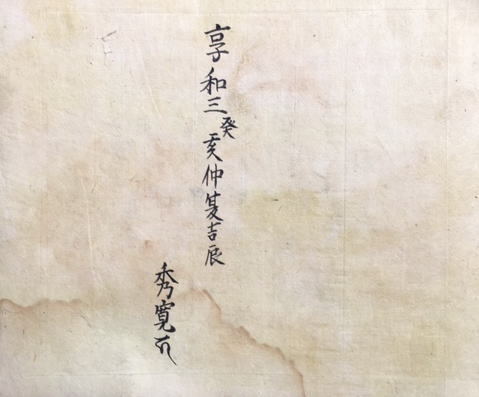 享和三癸亥仲夏吉辰
秀寛